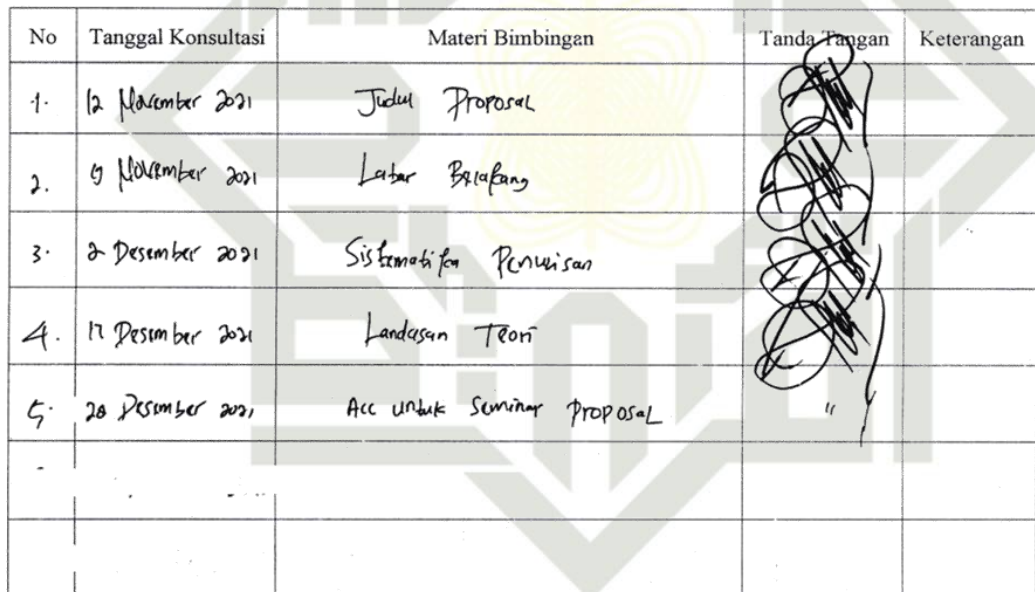 No Tanggal Konsultasi Materi Bimbingan Tanda Tangan Keterangan
1. 12 November 2021 Judul Proposal
2. November 2021 Latar Belakang
3. 2 Desember 2021 Sistematika Penulisan
4. 17 Desember 2021 Landasan Teori
5. Desember 2021 Acc untuk Seminar Proposal "